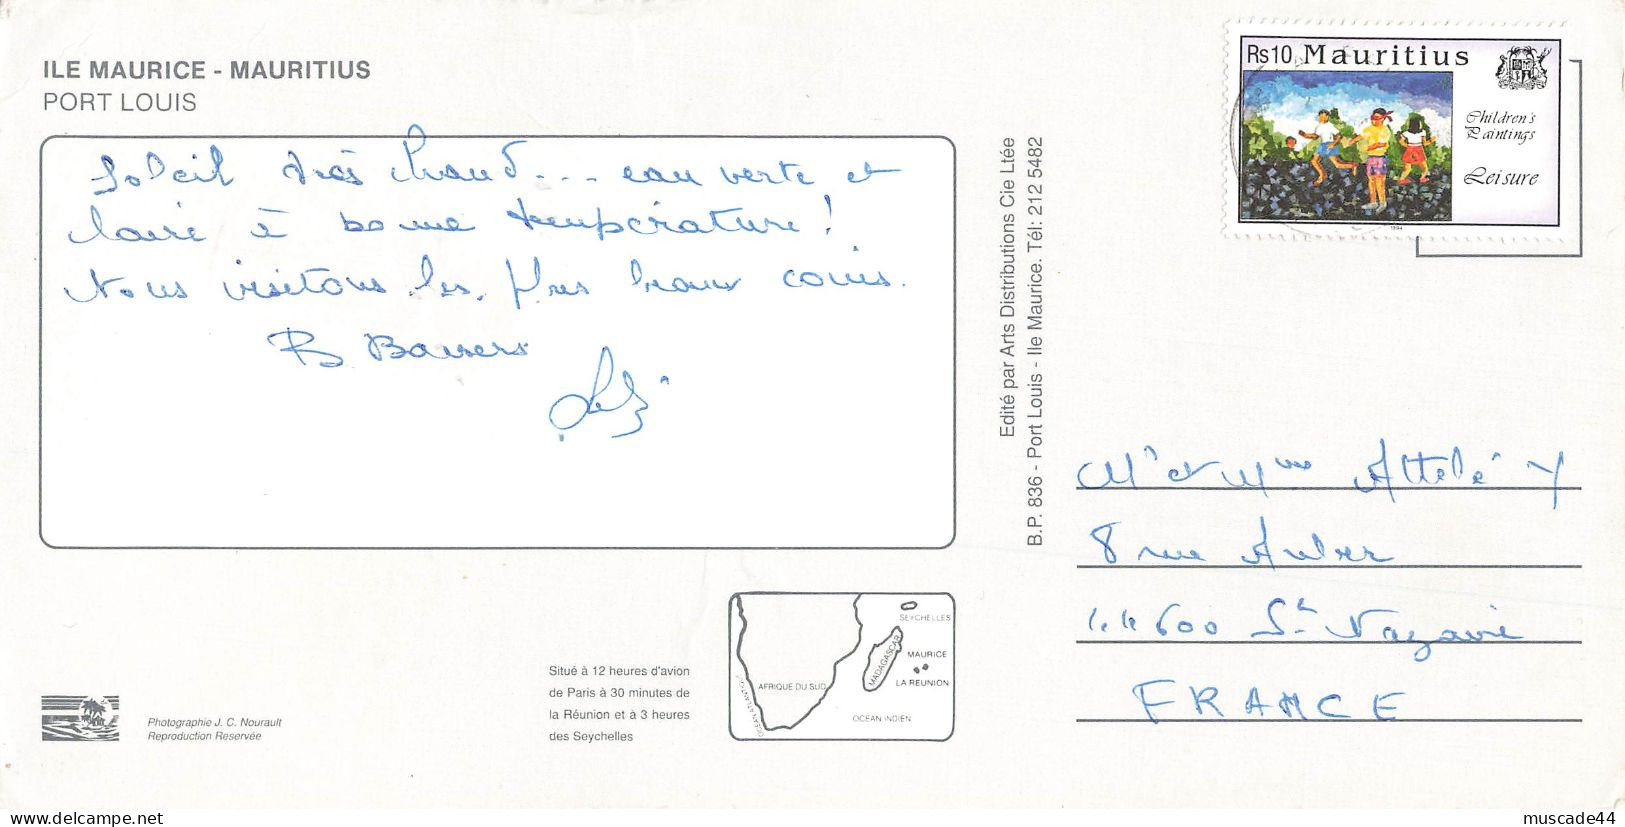 ILE MAURICE - MAURITIUS
PORT LOUIS
Soleil très chaud... eau verte et
claire à bonne température !
Nous visitons les plus beaux coins.
B Baisers
Edité par Arts Distributions Cie Ltée
B.P. 836 - Port Louis - Ile Maurice. Tél: 212 5482
Rs10 Mauritius
Children's
Paintings
Leisure
1994
Mr et Mme Attelé Y
8 rue Auber
44600 St Nazaire
FRANCE
Situé à 12 heures d'avion
de Paris à 30 minutes de
la Réunion et à 3 heures
des Seychelles
SEYCHELLES
MADAGASCAR
MAURICE
LA REUNION
AFRIQUE DU SUD
OCEAN ATLANTIQUE
OCEAN INDIEN
Photographie J. C. Nourault
Reproduction Reservée
muscade44